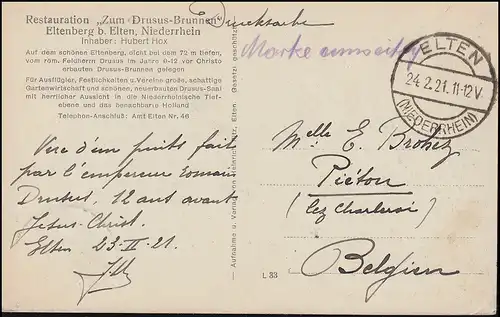 Restauration „Zum Drusus-Brunnen"
Eltenberg b. Elten, Niederrhein
Inhaber: Hubert Hox
Auf dem schönen Eltenberg, dicht bei dem 72 m tiefen,
vom röm. Feldherrn Drusus im Jahre 0-12 vor Christo
erbauten Drusus-Brunnen gelegen
Für Ausflügler, Festlichkeiten u. Vereine große, schattige
Gartenwirtschaft und schönen, neuerbauten Drusus-Saal
mit herrlicher Aussicht in die Niederrheinische Tief-
ebene und das benachbarte Holland
Telephon-Anschluß: Amt Elten Nr. 46
Drucksache
Marke
ELTEN
24.2.21.11-12V.
(NIEDERRHEIN)
Vue d'un puits fait
par l'empereur romain
Drusus, 12 ans avant
Jésus-Christ.
Elten 23-II-21.
Aufnahme u. Verlag von Heinrich Elten. Gesetzl. geschützt
L 33
Melle E. Brohez
Piéton
(lez Charleroi)
Belgien